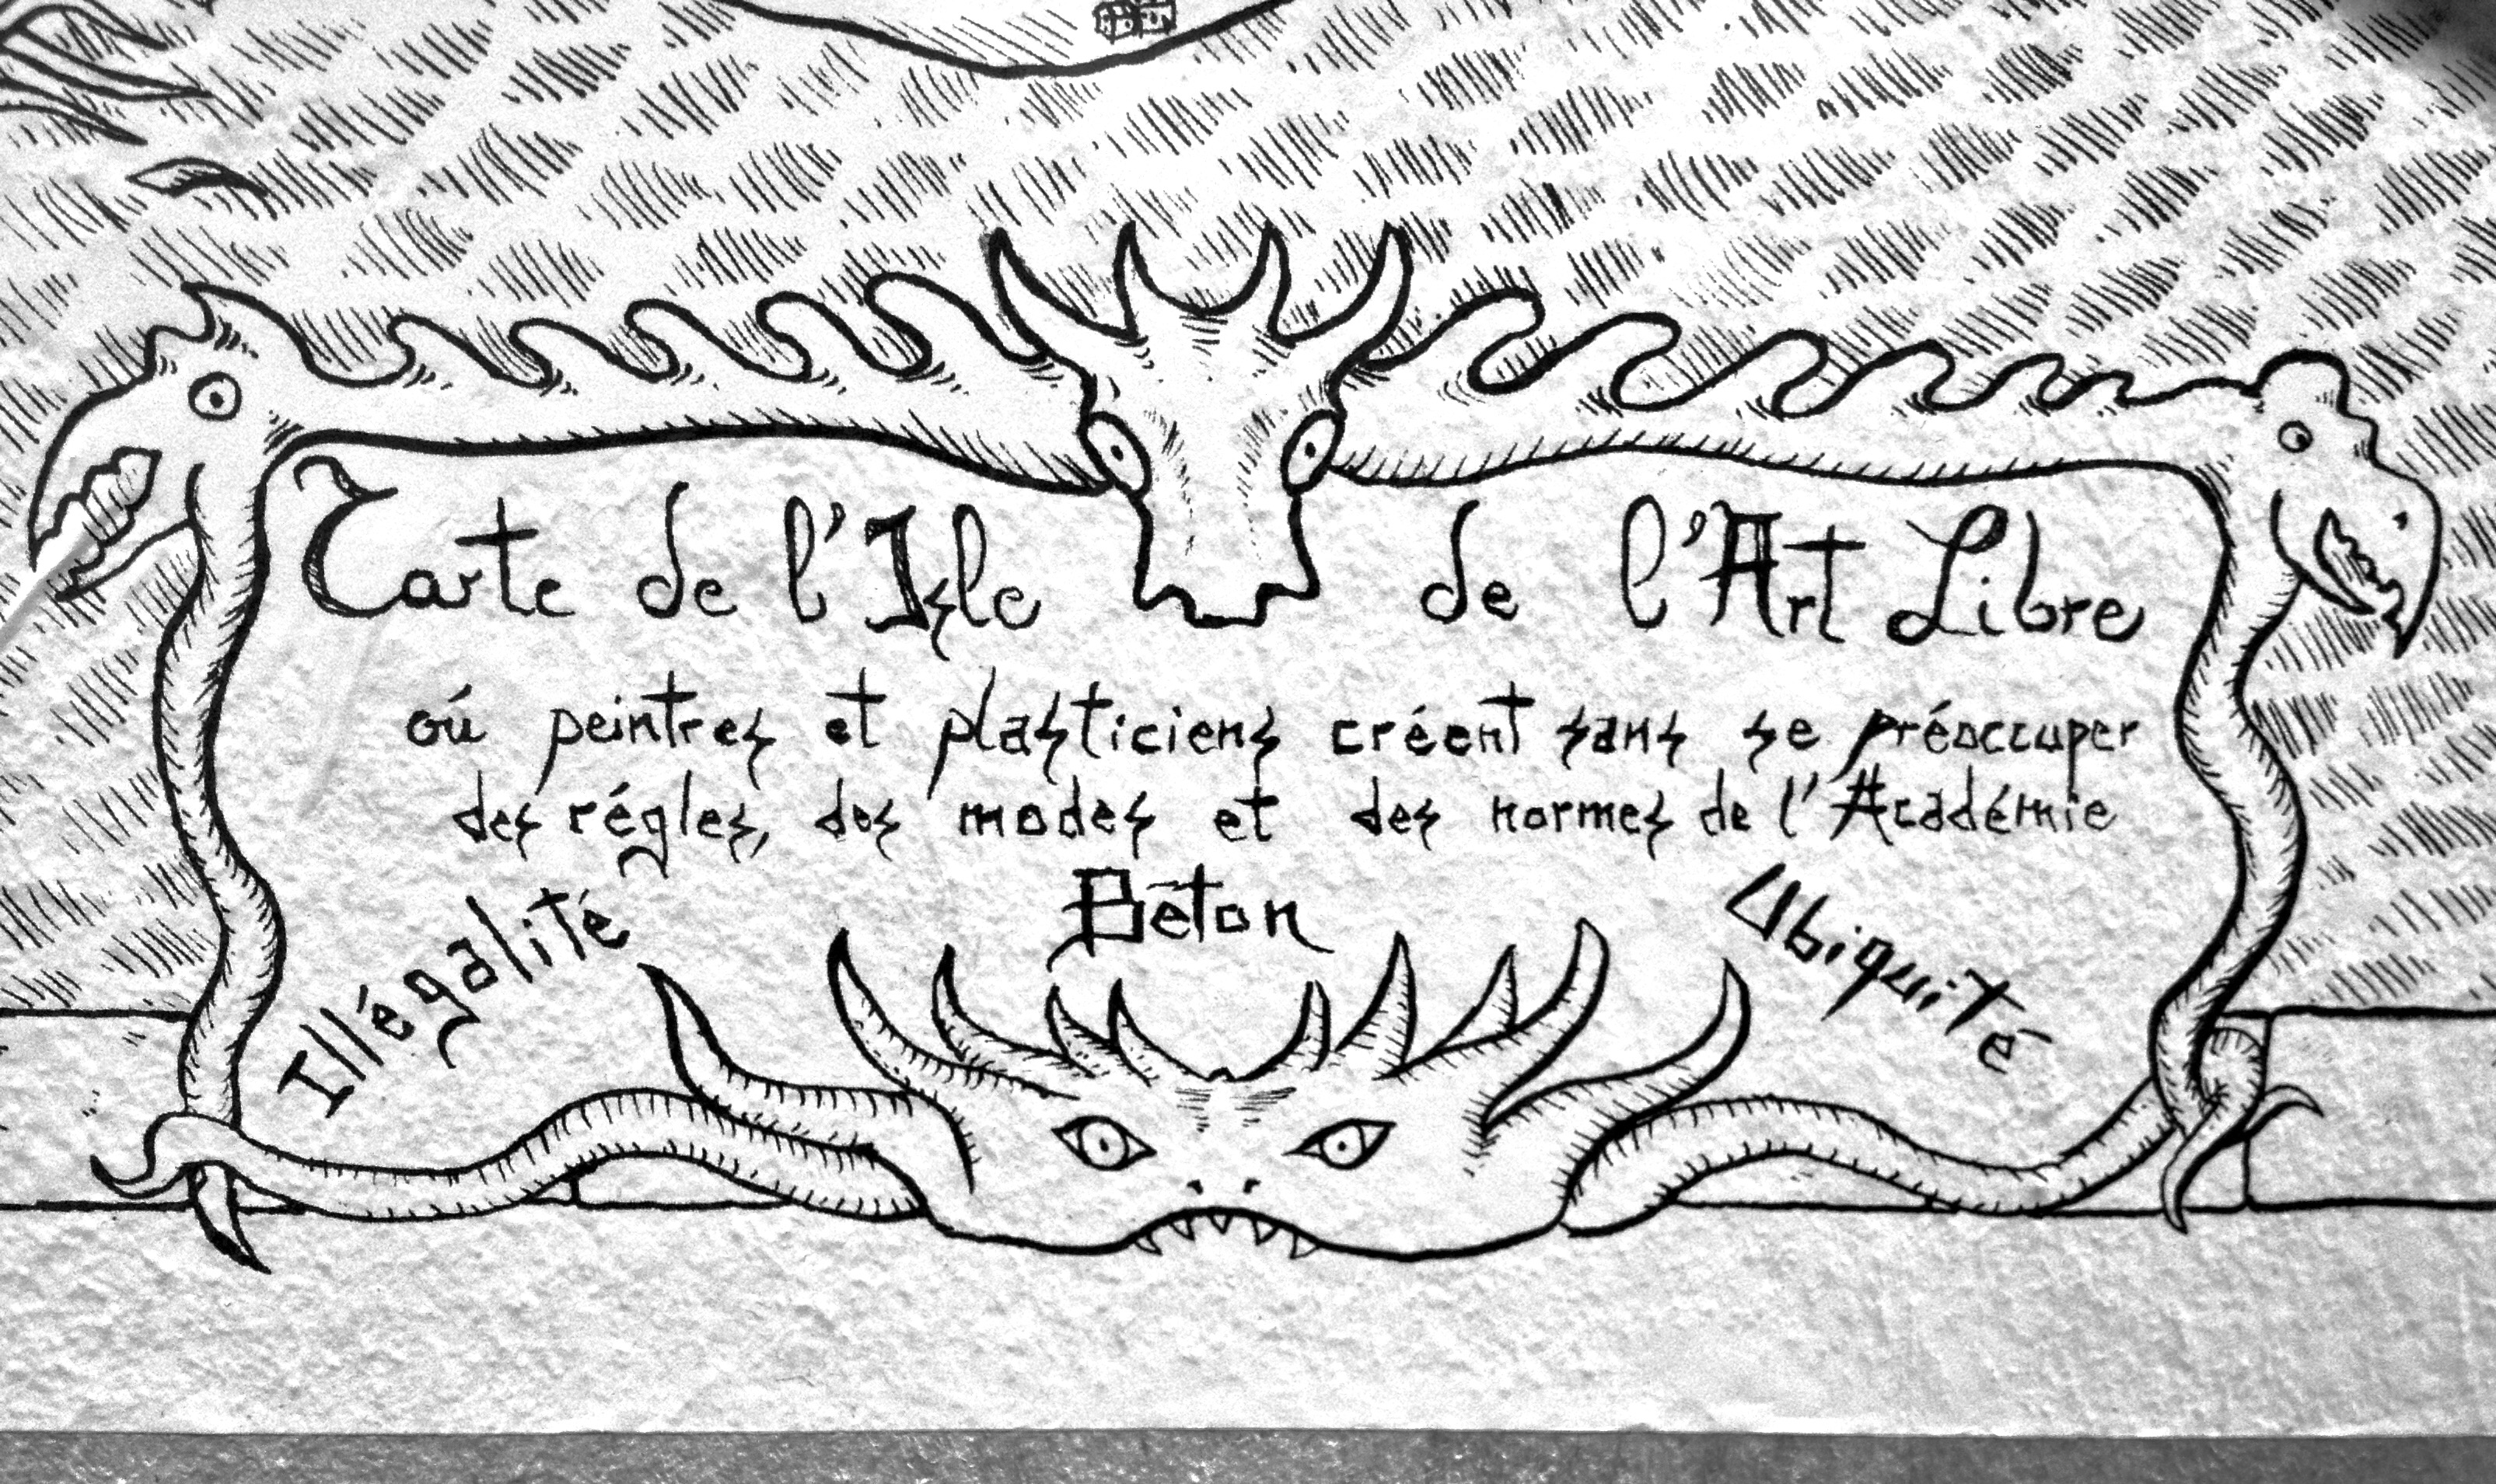 Carte de l'Isle de l'Art Libre
oú peintres et plasticiens créent sans se préoccuper
des régles, des modes et des normes de l'Académie
Illégalité Béton Ubiquité